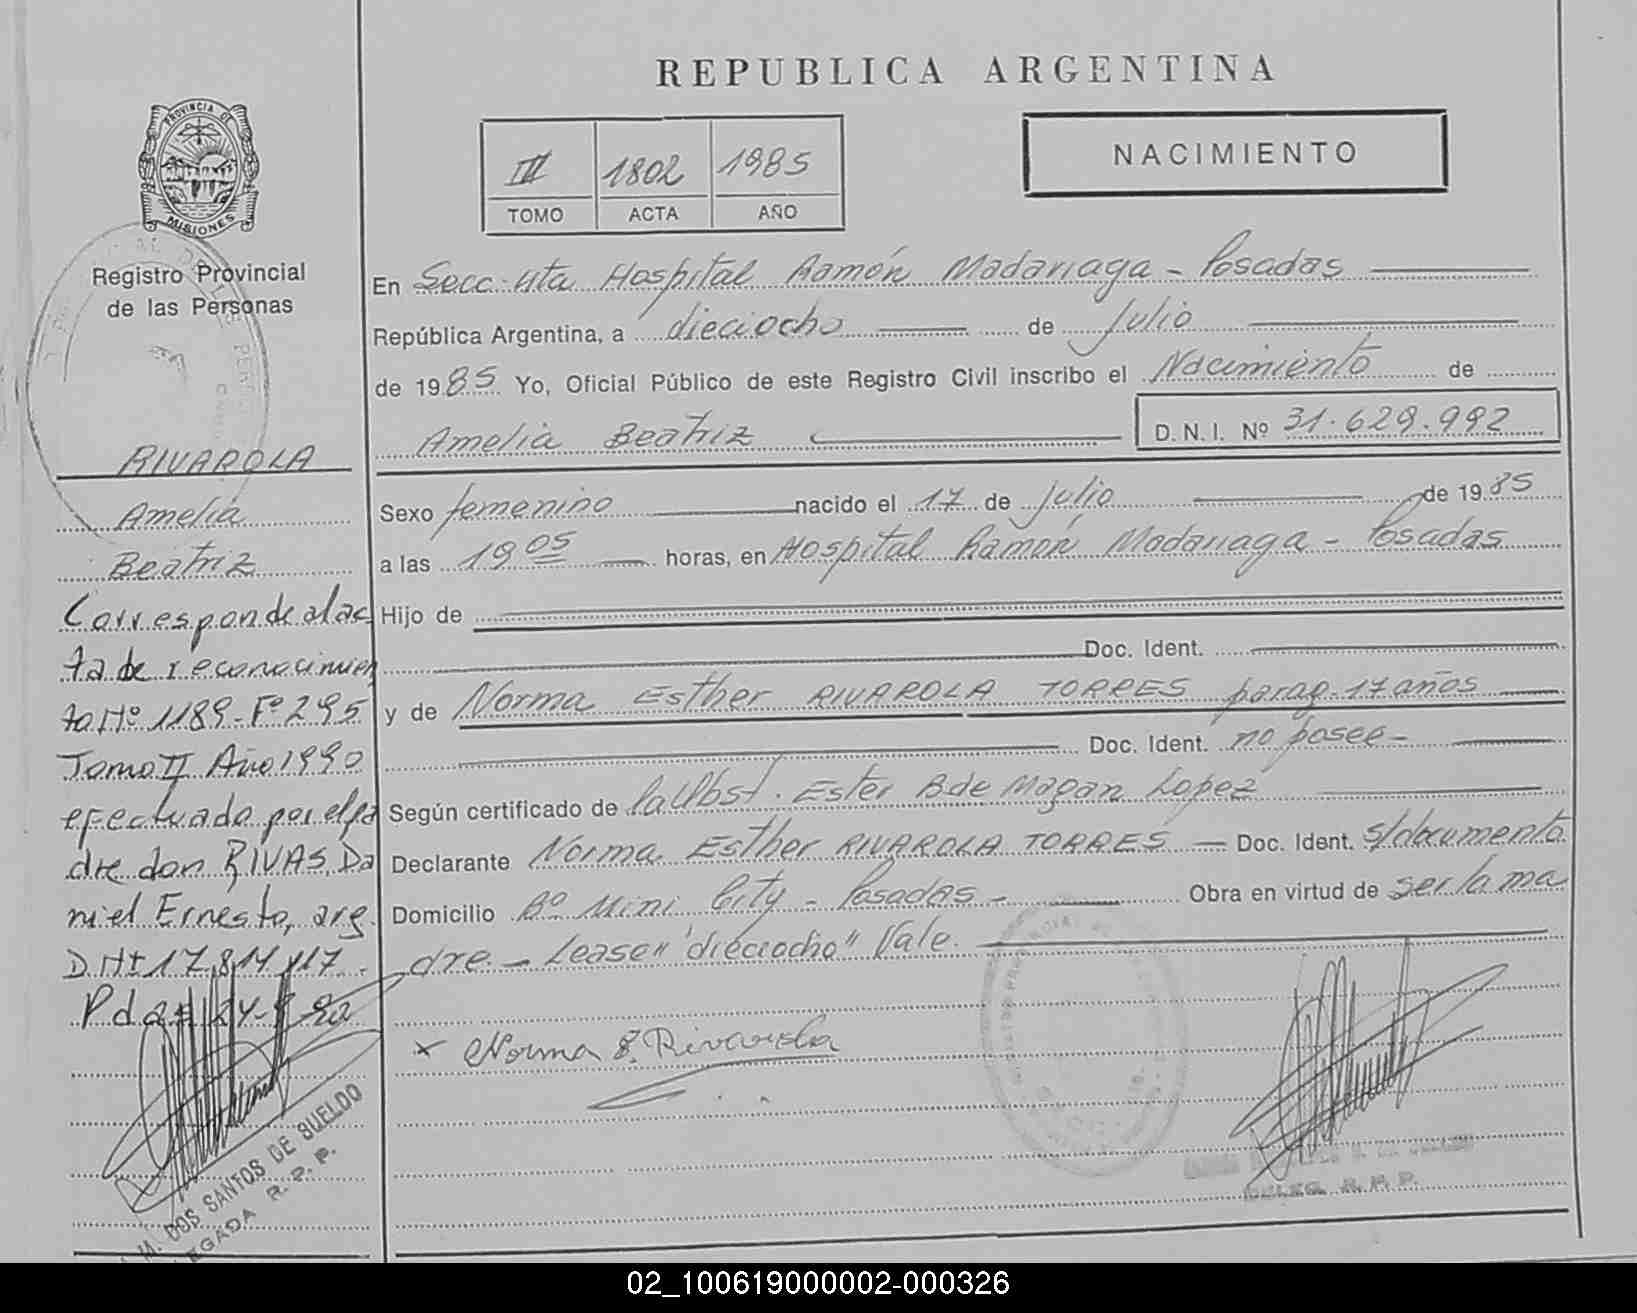 REPUBLICA ARGENTINA
PROVINCIA DE
MISIONES
Registro Provincial
de las Personas
III 1802 1985
TOMO ACTA AÑO
NACIMIENTO
En Secc. 4ta Hospital Ramón Madariaga - Posadas
República Argentina, a dieciocho de Julio
de 1985 Yo, Oficial Público de este Registro Civil inscribo el Nacimiento de
Amelia Beatriz D. N. I. Nº 31.629.992
Sexo femenino nacido el 17 de Julio de 1985
a las 19 05 horas, en Hospital Ramón Madariaga - Posadas
Hijo de
Doc. Ident.
y de Norma Esther RIVAROLA TORRES parag. 17 años
Doc. Ident. no posee -
Según certificado de la Obst. Ester B de Magan Lopez
Declarante Norma Esther RIVAROLA TORRES — Doc. Ident. S/documento
Domicilio Bº Mini City - Posadas - Obra en virtud de ser la ma
dre. - Lease "dieciocho" Vale.
x Norma E. Rivarola
RIVAROLA
Amelia
Beatriz
Corresponde al ac
ta de reconocimien
to Nº 1189 - Fº 295
Tomo II Año 1990
efectuado por el pa
dre don RIVAS, Da
niel Ernesto, arg.
D.N.I 17.814.117
Pdas
M. DOS SANTOS DE SUELDO
DELEGADA R. P. P.
DELEG. R. P. P.
02_100619000002-000326